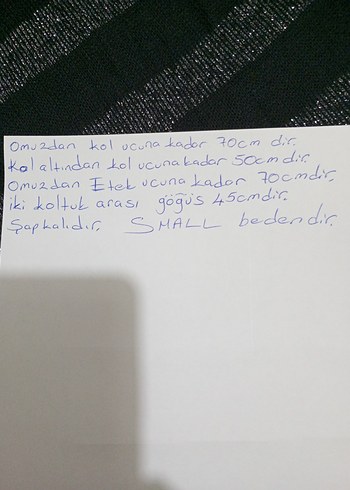 Omuzdan kol ucuna kadar 70cm dir.
Kol altından kol ucuna kadar 50cm dir.
Omuzdan Etek ucuna kadar 70cmdir.
iki koltuk arası göğüs 45cmdir.
Şapkalıdır. SMALL bedendir.